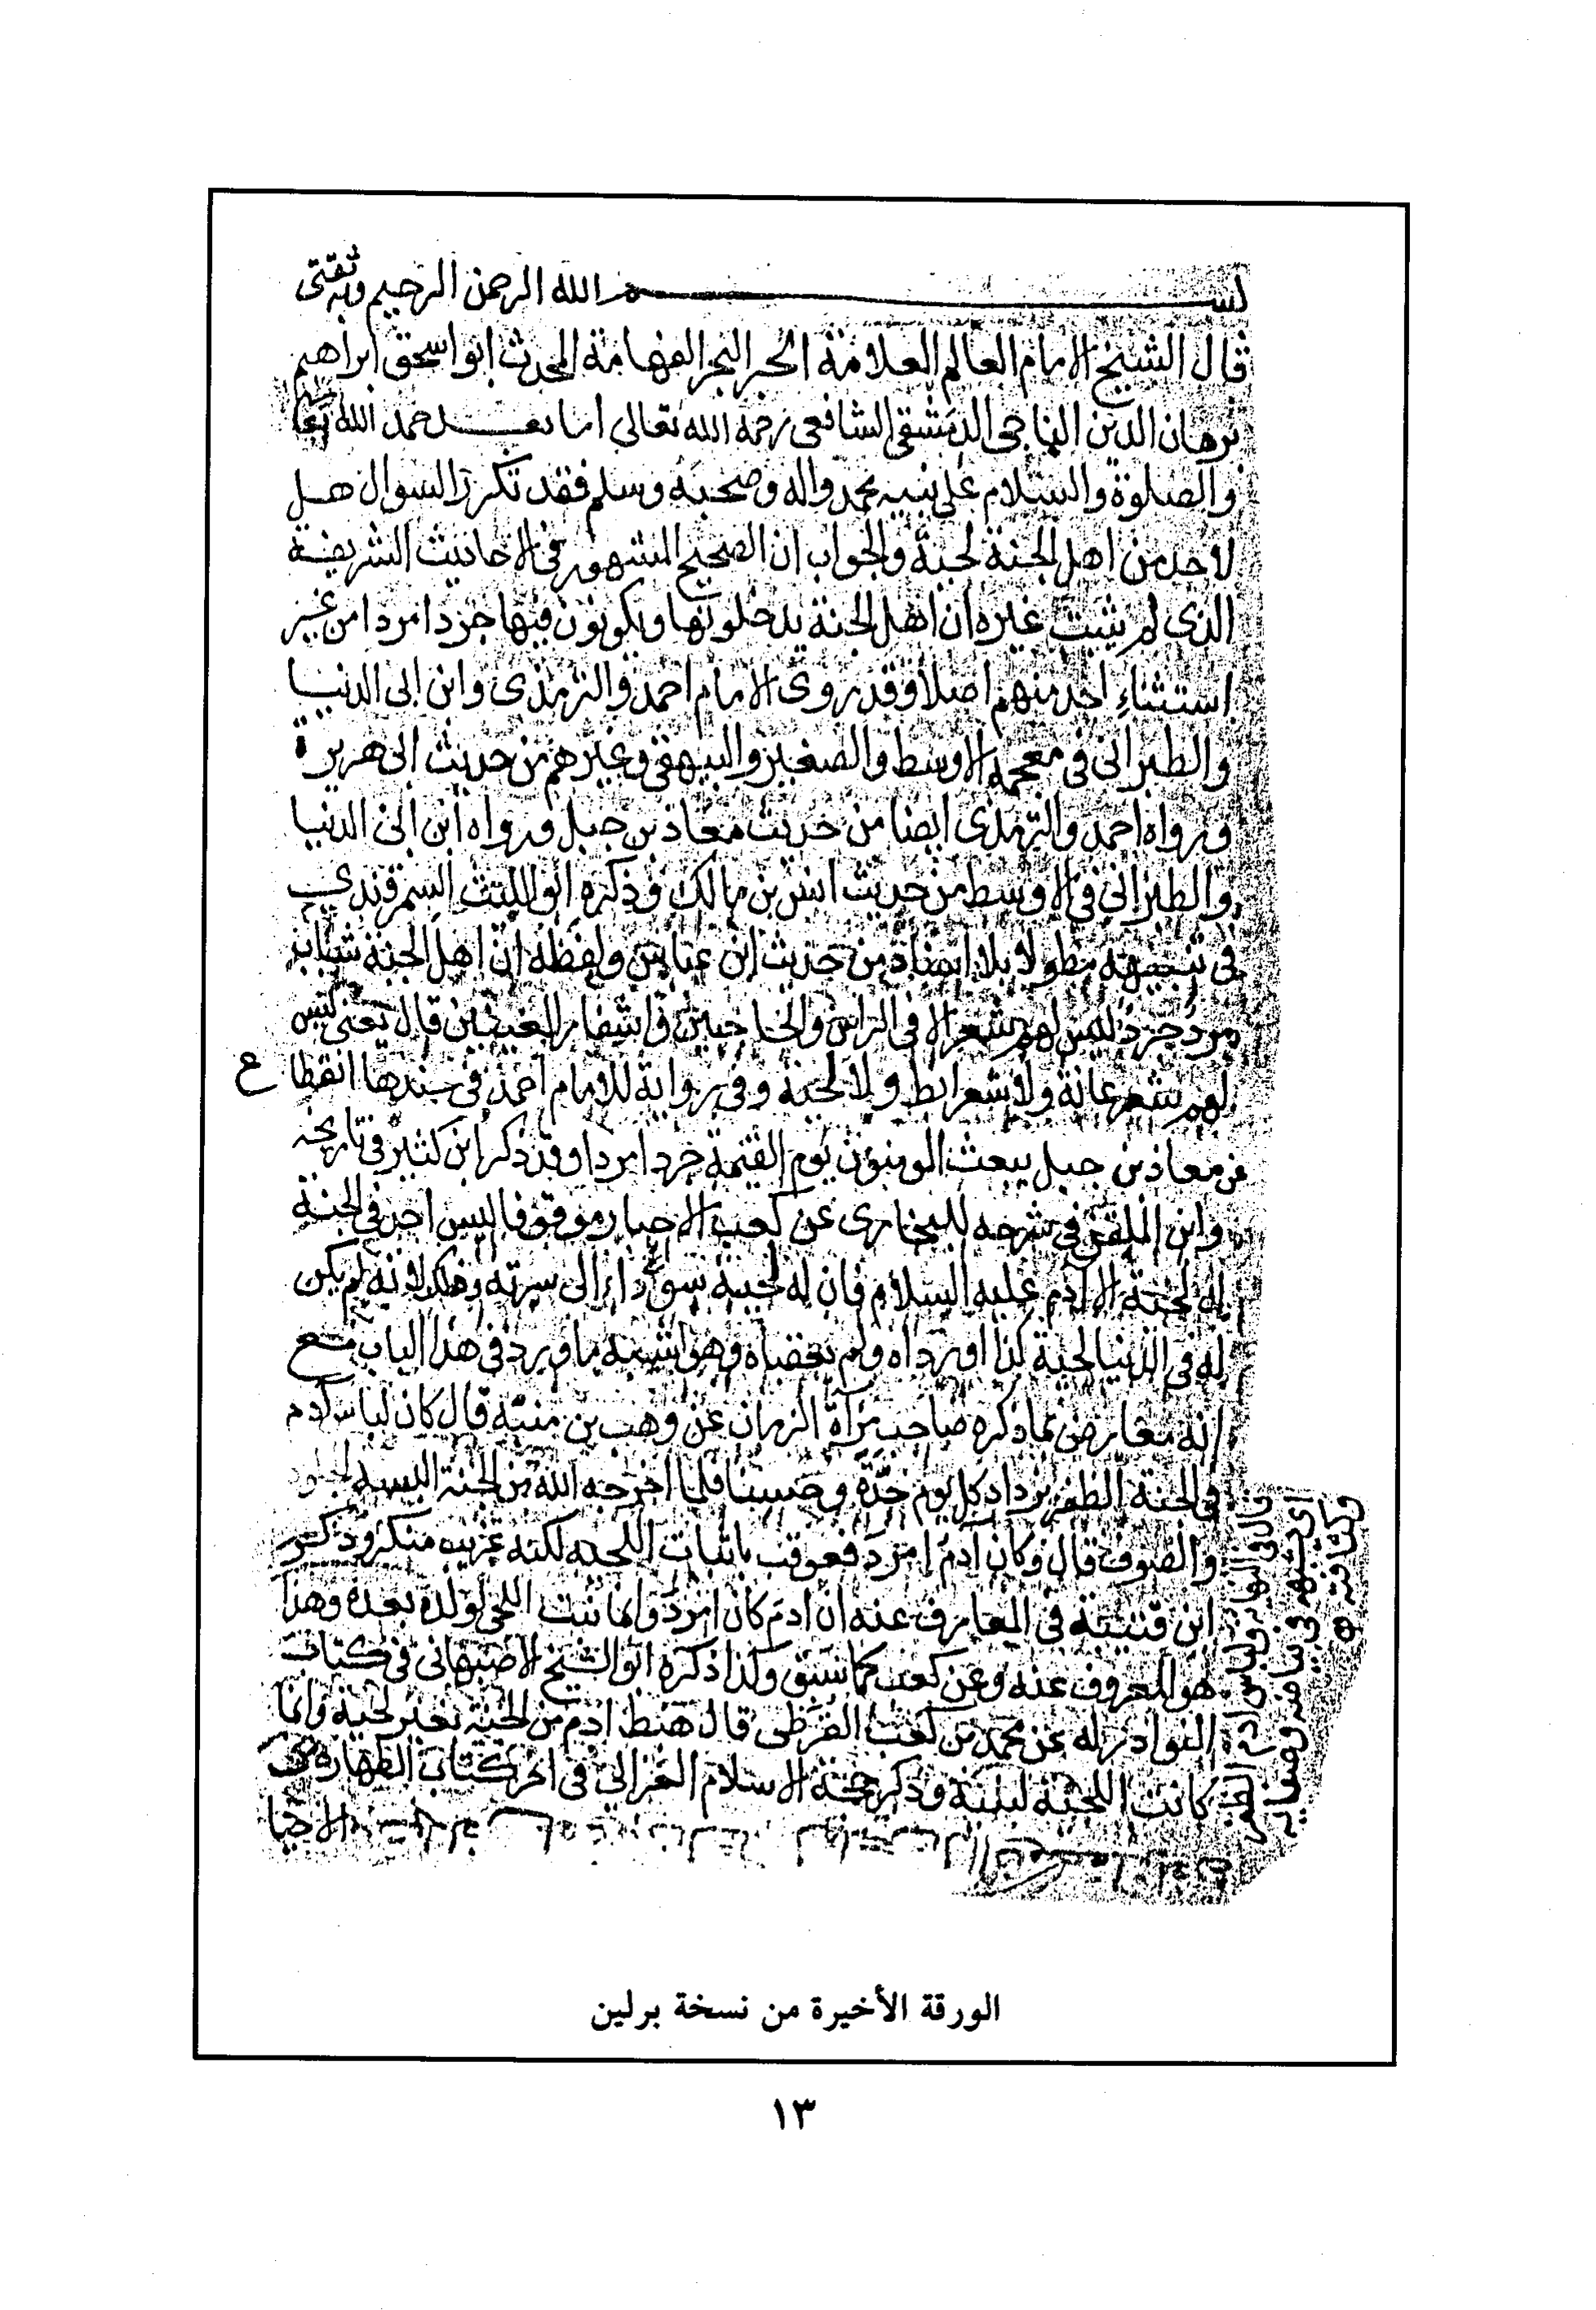 بسم الله الرحمن الرحيم وبه ثقتى
قال الشيخ الامام العالم العلامة الحبر البحر الفهامة المحدث ابو اسحق ابراهيم
برهان الدين الناجى الدمشقى الشافعى رحمه الله تعالى اما بعد حمد الله تعالى
والصلوة والسلام على نبيه محمد واله وصحبه وسلم فقد تكرر السوال هل
لاحد من اهل الجنة لحية والجواب ان الصحيح المشهور فى الاحاديث الشريفة
الذى لم يثبت غيره ان اهل الجنة يدخلونها ويكونون فيها جردا مردا من غير
استثناء احد منهم اصلا وقد روى الامام احمد والترمذى وابن ابى الدنيا
والطبرانى فى معجمه الاوسط والصغير والبيهقى وغيرهم من حديث ابى هريرة
ورواه احمد والترمذى ايضا من حديث معاذ بن جبل ورواه ابن ابى الدنيا
والطبرانى فى الاوسط من حديث انس بن مالك وذكره ابو الليث السمرقندى
فى تنبيهه مطولا بلا اسناد من حديث ابن عباس ولفظه ان اهل الجنة شباب
مرد جرد ليس لهم شعر الا فى الراس والحاجبين واشفار العينين قال يعنى ليس
لهم شعر عانة ولا شعر ابط ولا لحية وفى رواية للامام احمد فى سندها انقطاع
عن معاذ بن جبل يبعث المومنون يوم القيمة جردا مردا وقد ذكر ابن كثير فى تاريخه
وابن الملقن فى شرحه للبخارى عن كعب الاحبار موقوفا ليس احد فى الجنة
له لحية الا آدم عليه السلام فان له لحية سوداء الى سرته وذلك لانه لم يكن
له فى الدنيا لحية كذا اورداه ولم يتعقباه وهو اشبه ما ورد فى هذا الباب مع
انه معارض بما ذكره صاحب مرآة الزمان عن وهب بن منبه قال كان لباس آدم
فى الجنة الظفر يزداد كل يوم جدة وحسنا فلما اخرجه الله من الجنة البسه الجلود
والصوف قال وكان آدم امرد فعوقب بانبات اللحية لكنه غريب منكر وذكر
ابن قتيبة فى المعارف عنه ان ادم كان امرد وانما نبت اللحى لولده بعده وهذا
هو المعروف عنه وعن كعب كما سبق وكذا ذكره ابو الشيخ الاصبهانى فى كتاب
النوادر له عن محمد بن كعب القرظى قال هبط ادم من الجنة بغير لحية وانما
كانت اللحية لبنيه وذكر حجة الاسلام الغزالى فى اخر كتاب الطهارة من
الاحيا
الورقة الأخيرة من نسخة برلين
١٣